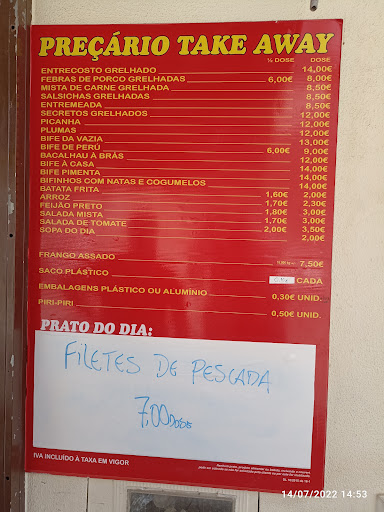 PREÇÁRIO TAKE AWAY
½ DOSE DOSE
ENTRECOSTO GRELHADO 14,00€
FEBRAS DE PORCO GRELHADAS 6,00€ 8,00€
MISTA DE CARNE GRELHADA 8,50€
SALSICHAS GRELHADAS 8,50€
ENTREMEADA 8,50€
SECRETOS GRELHADOS 12,00€
PICANHA 12,00€
PLUMAS 12,00€
BIFE DA VAZIA 13,00€
BIFE DE PERÚ 6,00€ 9,00€
BACALHAU À BRÁS 12,00€
BIFE À CASA 14,00€
BIFE PIMENTA 14,00€
BIFINHOS COM NATAS E COGUMELOS 14,00€
BATATA FRITA 1,60€ 2,00€
ARROZ 1,70€ 2,30€
FEIJÃO PRETO 1,80€ 3,00€
SALADA MISTA 1,70€ 3,00€
SALADA DE TOMATE 2,00€ 3,50€
SOPA DO DIA 2,00€
FRANGO ASSADO 7,50€
SACO PLÁSTICO CADA
EMBALAGENS PLÁSTICO OU ALUMÍNIO 0,30€ UNID.
PIRI-PIRI 0,50€ UNID.
PRATO DO DIA:
FILETES DE PESCADA
7,00 DOSE
IVA INCLUÍDO À TAXA EM VIGOR
14/07/2022 14:53